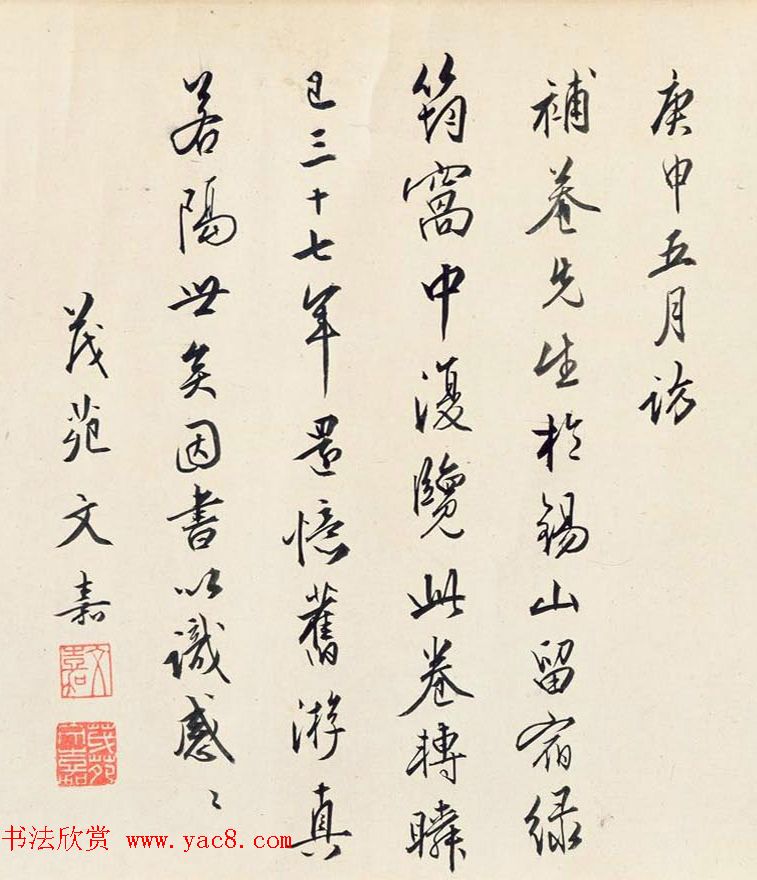 庚申五月訪
補菴先生於錫山留宿綠
筠窩中復覽此卷轉瞬
已三十七年還憶舊游真
若隔世矣因書以識感〻
茂苑文嘉
文嘉
茂苑文嘉
书法欣赏 www.yac8.com